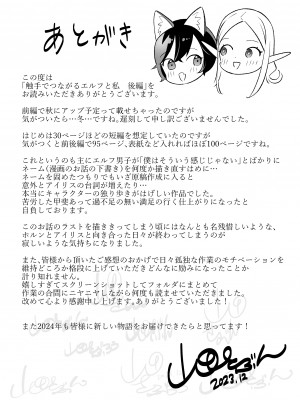 あとがき
この度は
「触手でつながるエルフと私　後編」を
お読みいただきありがとうございます。
前編で秋にアップ予定って載せちゃったのですが
気がついたら…冬…ですね。遅刻して申し訳ございませんでした。
はじめは30ページほどの短編を想定していたのですが
気がつくと前後編で95ページ、表紙など入れればほぼ100ページですね。
これというのも主にエルフ男子が「僕はそういう感じじゃない」とばかりに
ネーム（漫画のお話の下書き）を何度か描き直すはめに…
ネームを固めたつもりでもいざ原稿作成に入ると
意外とアイリスの台詞が増えたり…
本当にキャラクターの独り歩きがはげしい作品でした。
苦労した甲斐あって過不足の無い満足の行く仕上がりになったと
自負しております。
このお話のラストを描ききってしまう頃にはなんとも名残惜しいような、
ホルンとアイリスと向き合った日々が終わってしまうのが
寂しいような気持ちになりました。
また、皆様から頂いたご感想のおかげで日々孤独な作業のモチベーションを
維持どころか格段に上げていただきどんなに励みになったことか
計り知れません。
嬉しすぎてスクリーンショットしてフォルダにまとめて
作業の合間にニヤニヤしながら何度も読ませていただきました。
改めてどうより感謝申し上げます。ありがとうございました！
また2024年も皆様に新しい物語をお届けできたらと思ってます！
2023.12